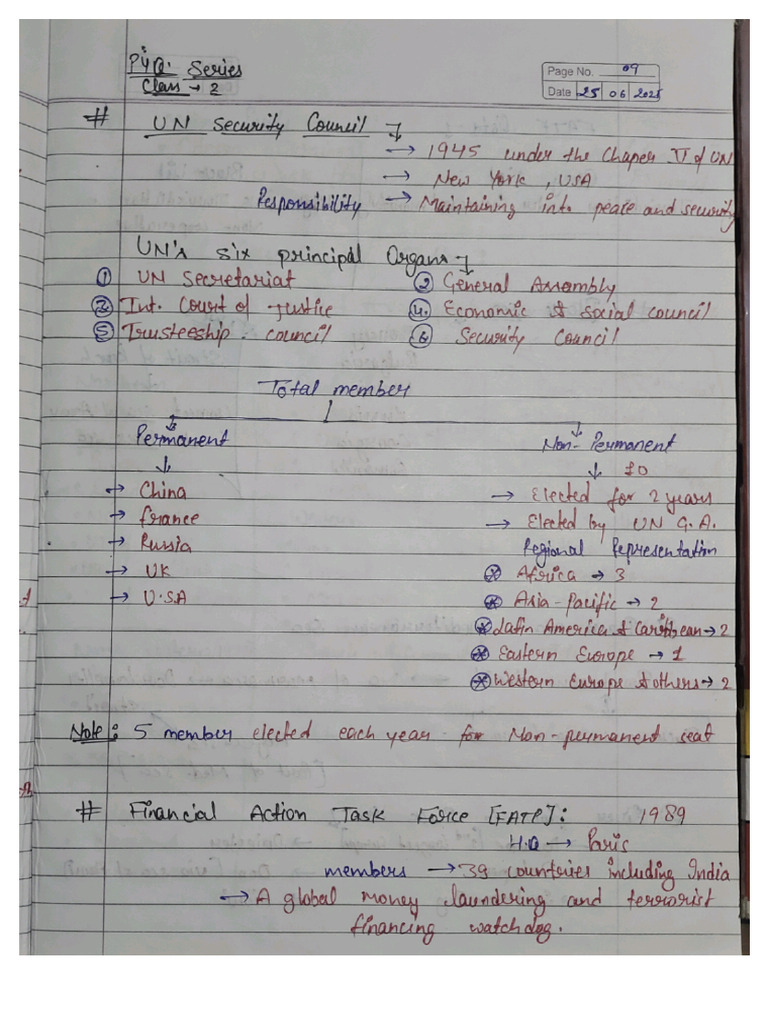 PYQ. Series
Class → 2
Page No. 09
Date 25 06 2025
# UN Security Council
→ 1945 under the Chaper V of UN
→ New York, USA
Responsibility → Maintaining int. peace and security
UN's six principal Organs
① UN Secretariat ② General Assembly
③ Int. Court of Justice ④ Economic & Social council
⑤ Trusteeship council ⑥ Security Council
Total member
Permanent Non-Permanent
↓ ↓ 10
→ China → Elected for 2 years
→ france → Elected by UN G.A.
→ Russia Regional Representation
→ UK Africa → 3
→ U.S.A Asia-Pacific → 2
Latin America & Caribbean → 2
Eastern Europe → 1
Western Europe & others → 2
Note: 5 member elected each year for Non-permanent seat
# Financial Action Task Force [FATF]: 1989
H.Q → Paris
members → 39 countries including India
→ A global money laundering and terrorist
financing watchdog.